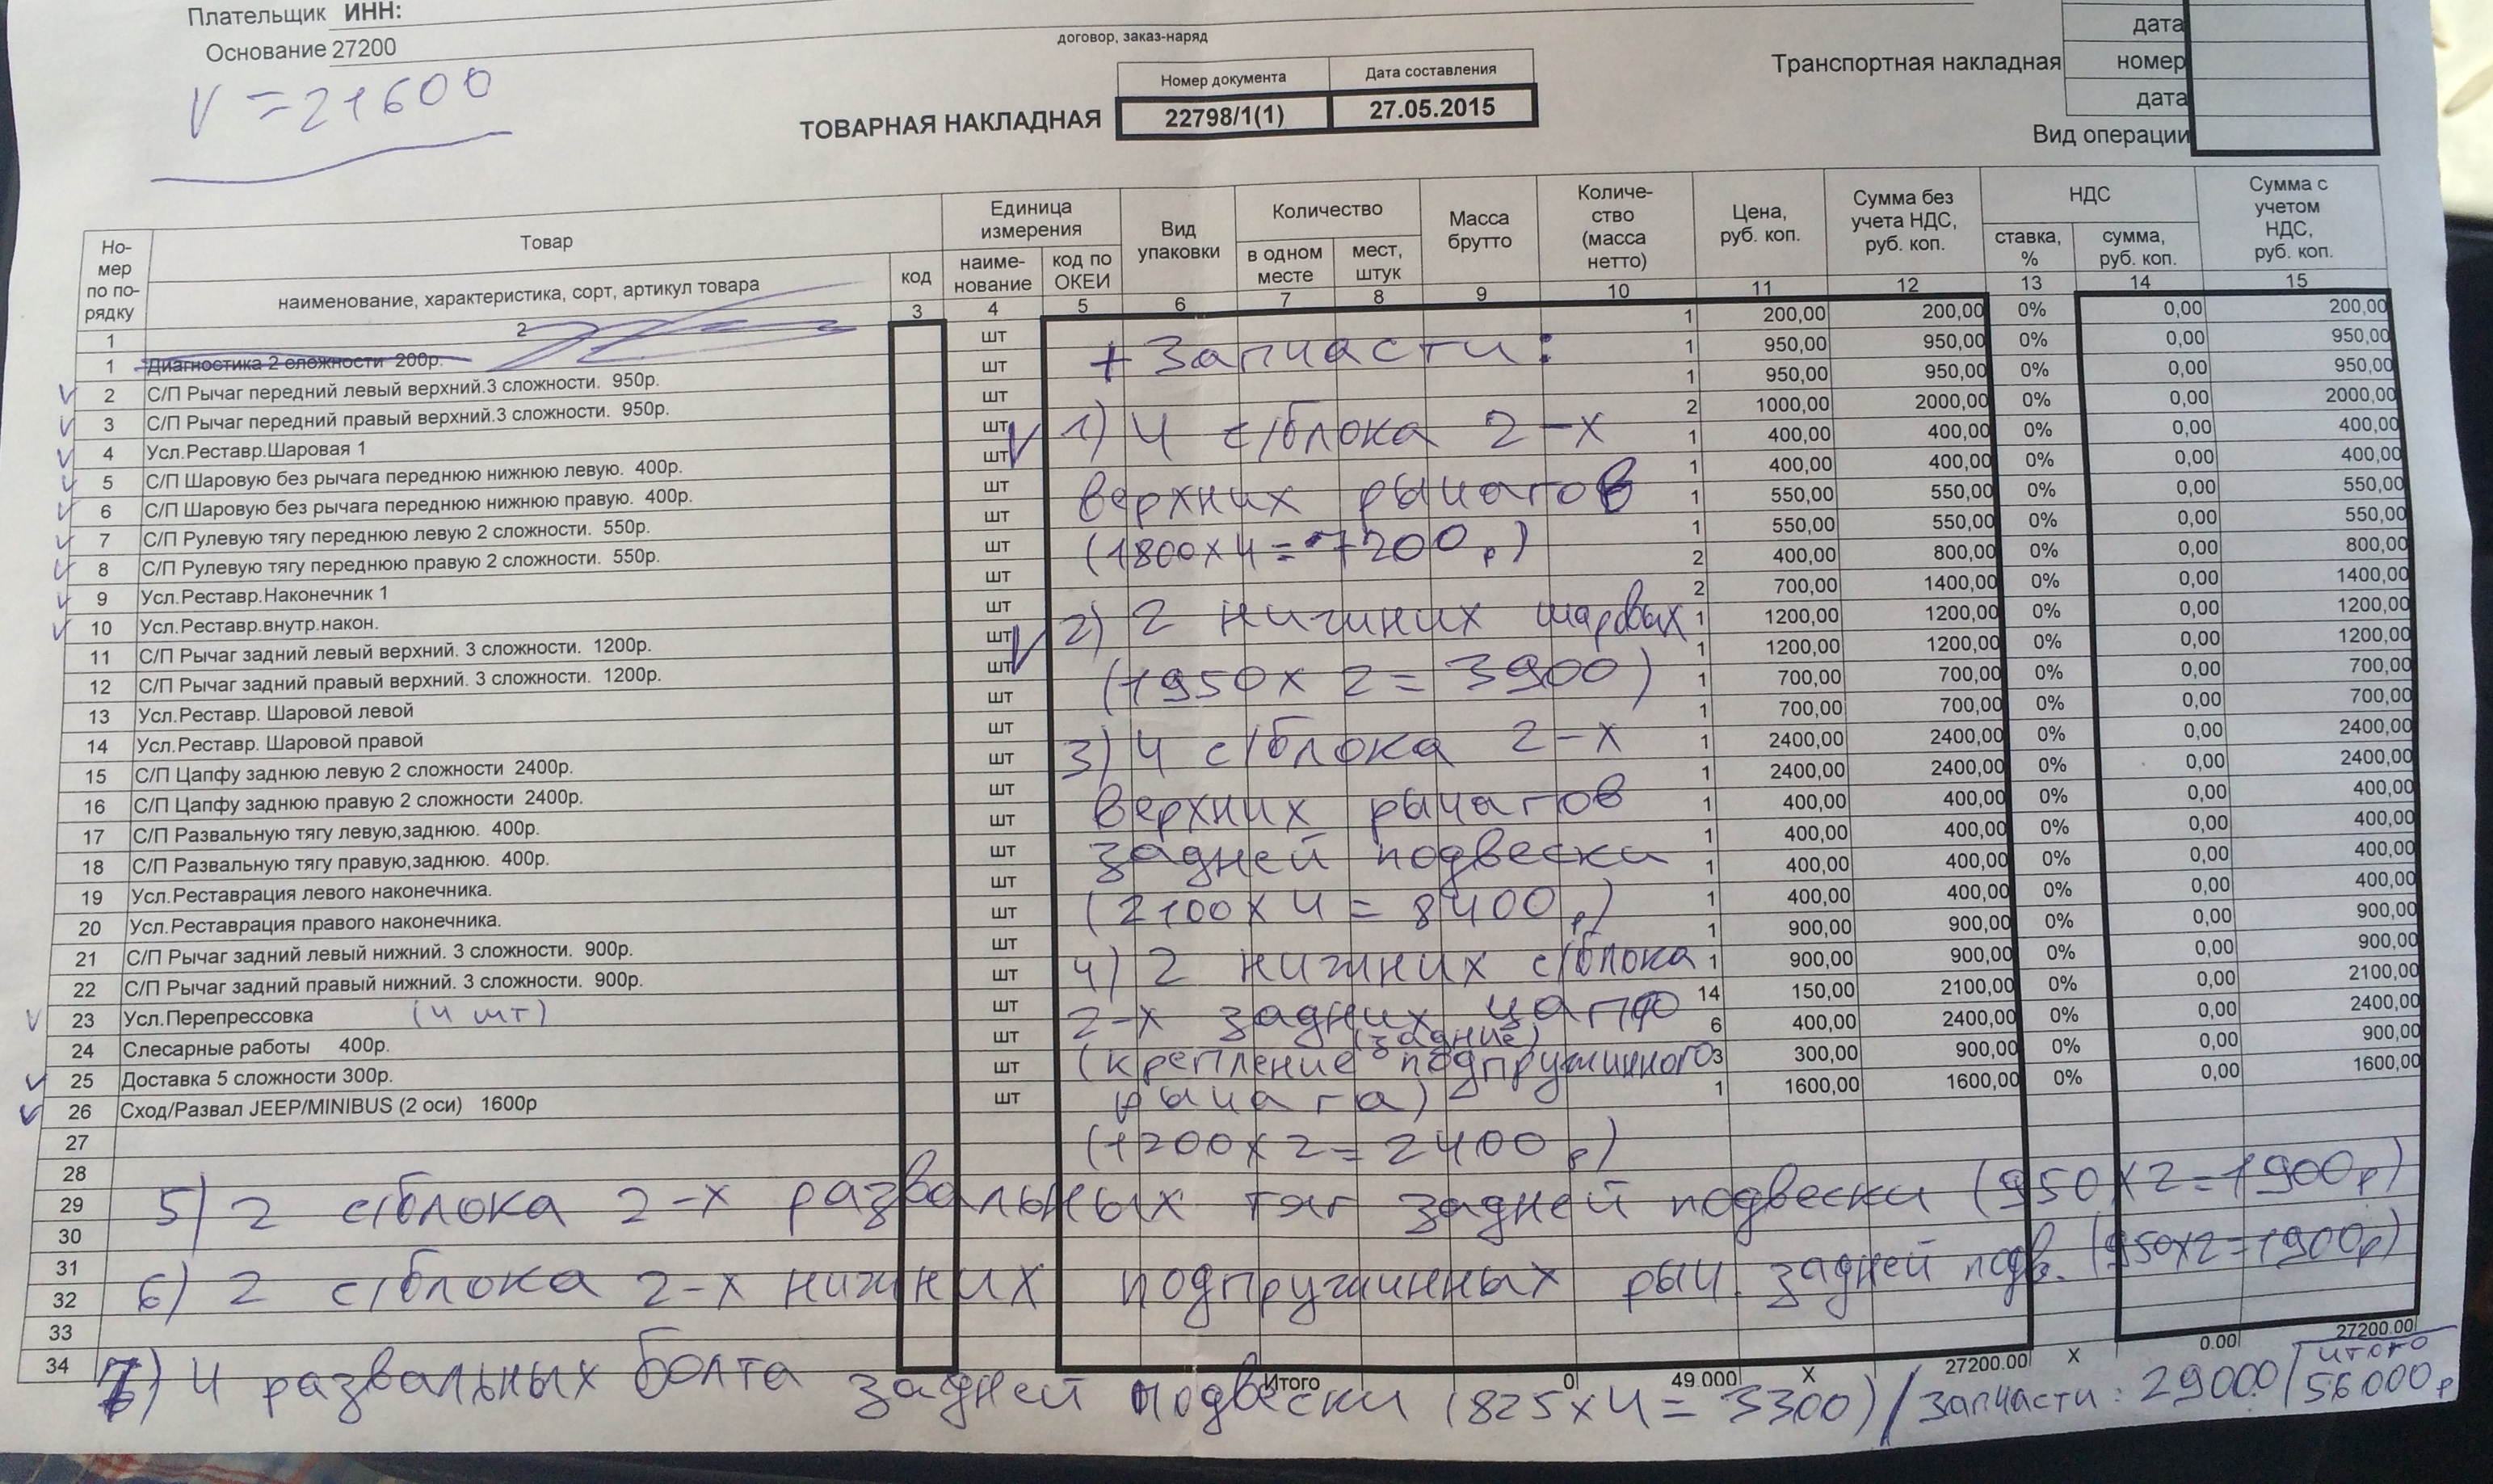 Плательщик ИНН:
Основание 27200
договор, заказ-наряд
V = 21600
Транспортная накладная
дата
номер
дата
Вид операции
Номер документа Дата составления
ТОВАРНАЯ НАКЛАДНАЯ 22798/1(1) 27.05.2015
Но-мер по по-рядку Товар Единица измерения Вид упаковки Количество Масса брутто Количе-ство (масса нетто) Цена, руб. коп. Сумма без учета НДС, руб. коп. НДС Сумма с учетом НДС, руб. коп.
наименование, характеристика, сорт, артикул товара код наиме-нование код по ОКЕИ в одном месте мест, штук ставка, % сумма, руб. коп.
1 2 3 4 5 6 7 8 9 10 11 12 13 14 15
1 Диагностика 2 сложности 200р. шт 1 200,00 200,00 0% 0,00 200,00
2 С/П Рычаг передний левый верхний.3 сложности. 950р. шт 1 950,00 950,00 0% 0,00 950,00
3 С/П Рычаг передний правый верхний.3 сложности. 950р. шт 1 950,00 950,00 0% 0,00 950,00
4 Усл.Реставр.Шаровая 1 шт 2 1000,00 2000,00 0% 0,00 2000,00
5 С/П Шаровую без рычага переднюю нижнюю левую. 400р. шт 1 400,00 400,00 0% 0,00 400,00
6 С/П Шаровую без рычага переднюю нижнюю правую. 400р. шт 1 400,00 400,00 0% 0,00 400,00
7 С/П Рулевую тягу переднюю левую 2 сложности. 550р. шт 1 550,00 550,00 0% 0,00 550,00
8 С/П Рулевую тягу переднюю правую 2 сложности. 550р. шт 1 550,00 550,00 0% 0,00 550,00
9 Усл.Реставр.Наконечник 1 шт 2 400,00 800,00 0% 0,00 800,00
10 Усл.Реставр.внутр.након. шт 2 700,00 1400,00 0% 0,00 1400,00
11 С/П Рычаг задний левый верхний. 3 сложности. 1200р. шт 1 1200,00 1200,00 0% 0,00 1200,00
12 С/П Рычаг задний правый верхний. 3 сложности. 1200р. шт 1 1200,00 1200,00 0% 0,00 1200,00
13 Усл.Реставр. Шаровой левой шт 1 700,00 700,00 0% 0,00 700,00
14 Усл.Реставр. Шаровой правой шт 1 700,00 700,00 0% 0,00 700,00
15 С/П Цапфу заднюю левую 2 сложности 2400р. шт 1 2400,00 2400,00 0% 0,00 2400,00
16 С/П Цапфу заднюю правую 2 сложности 2400р. шт 1 2400,00 2400,00 0% 0,00 2400,00
17 С/П Развальную тягу левую,заднюю. 400р. шт 1 400,00 400,00 0% 0,00 400,00
18 С/П Развальную тягу правую,заднюю. 400р. шт 1 400,00 400,00 0% 0,00 400,00
19 Усл.Реставрация левого наконечника. шт 1 400,00 400,00 0% 0,00 400,00
20 Усл.Реставрация правого наконечника. шт 1 400,00 400,00 0% 0,00 400,00
21 С/П Рычаг задний левый нижний. 3 сложности. 900р. шт 1 900,00 900,00 0% 0,00 900,00
22 С/П Рычаг задний правый нижний. 3 сложности. 900р. шт 1 900,00 900,00 0% 0,00 900,00
23 Усл.Перепрессовка (4 шт) шт 14 150,00 2100,00 0% 0,00 2100,00
24 Слесарные работы 400р. шт 6 400,00 2400,00 0% 0,00 2400,00
25 Доставка 5 сложности 300р. шт 3 300,00 900,00 0% 0,00 900,00
26 Сход/Развал JEEP/MINIBUS (2 оси) 1600р шт 1 1600,00 1600,00 0% 0,00 1600,00
27
28
29
30
31
32
33
34
+ Запчасти:
1) 4 с/блока 2-х
верхних рычагов
(1800 х 4 = 7200 р)
2) 2 нижних шаровых
(1950 х 2 = 3900)
3) 4 с/блока 2-х
верхних рычагов
задней подвески
(2100 х 4 = 8400 р)
4) 2 нижних с/блока
2-х задних цапф
(задние)
(крепление подпружинного
рычага)
(1200 х 2 = 2400 р)
5) 2 с/блока 2-х развальных тяг задней подвески (950 х 2 = 1900 р)
6) 2 с/блока 2-х нижних подпружинных рыч. задней подв. (950 х 2 = 1900 р)
Итого 0 49.000 X 27200.00 X 0.00 27200.00
7) 4 развальных болта задней подвески (825 х 4 = 3300) / Запчасти: 29000 / итого 56000 р